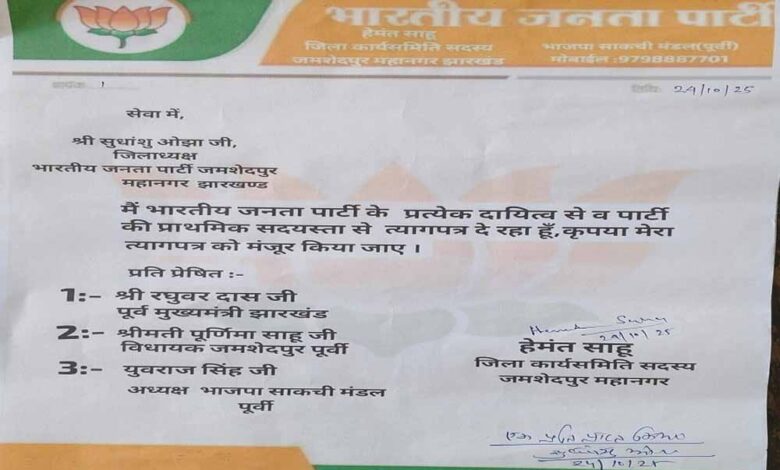 भारतीय जनता पार्टी
हेमंत साहु
जिला कार्यसमिति सदस्य
जमशेदपुर महानगर झारखण्ड
भाजपा साकची मंडल(पूर्वी)
मोबाईल :9798887701
24/10/25
सेवा में,
श्री सुधांशु ओझा जी,
जिलाध्यक्ष
भारतीय जनता पार्टी जमशेदपुर
महानगर झारखण्ड
मैं भारतीय जनता पार्टी के प्रत्येक दायित्व से व पार्टी
की प्राथमिक सदयस्ता से त्यागपत्र दे रहा हूँ,कृपया मेरा
त्यागपत्र को मंजूर किया जाए ।
प्रति प्रेषित :-
1:- श्री रघुवर दास जी
पूर्व मुख्यमंत्री झारखंड
2:- श्रीमती पूर्णिमा साहू जी
विधायक जमशेदपुर पूर्वी
3:- युवराज सिंह जी
अध्यक्ष भाजपा साकची मंडल
पूर्वी
24/10/25
हेमंत साहू
जिला कार्यसमिति सदस्य
जमशेदपुर महानगर
एक प्रति प्राप्त किया
24/10/25